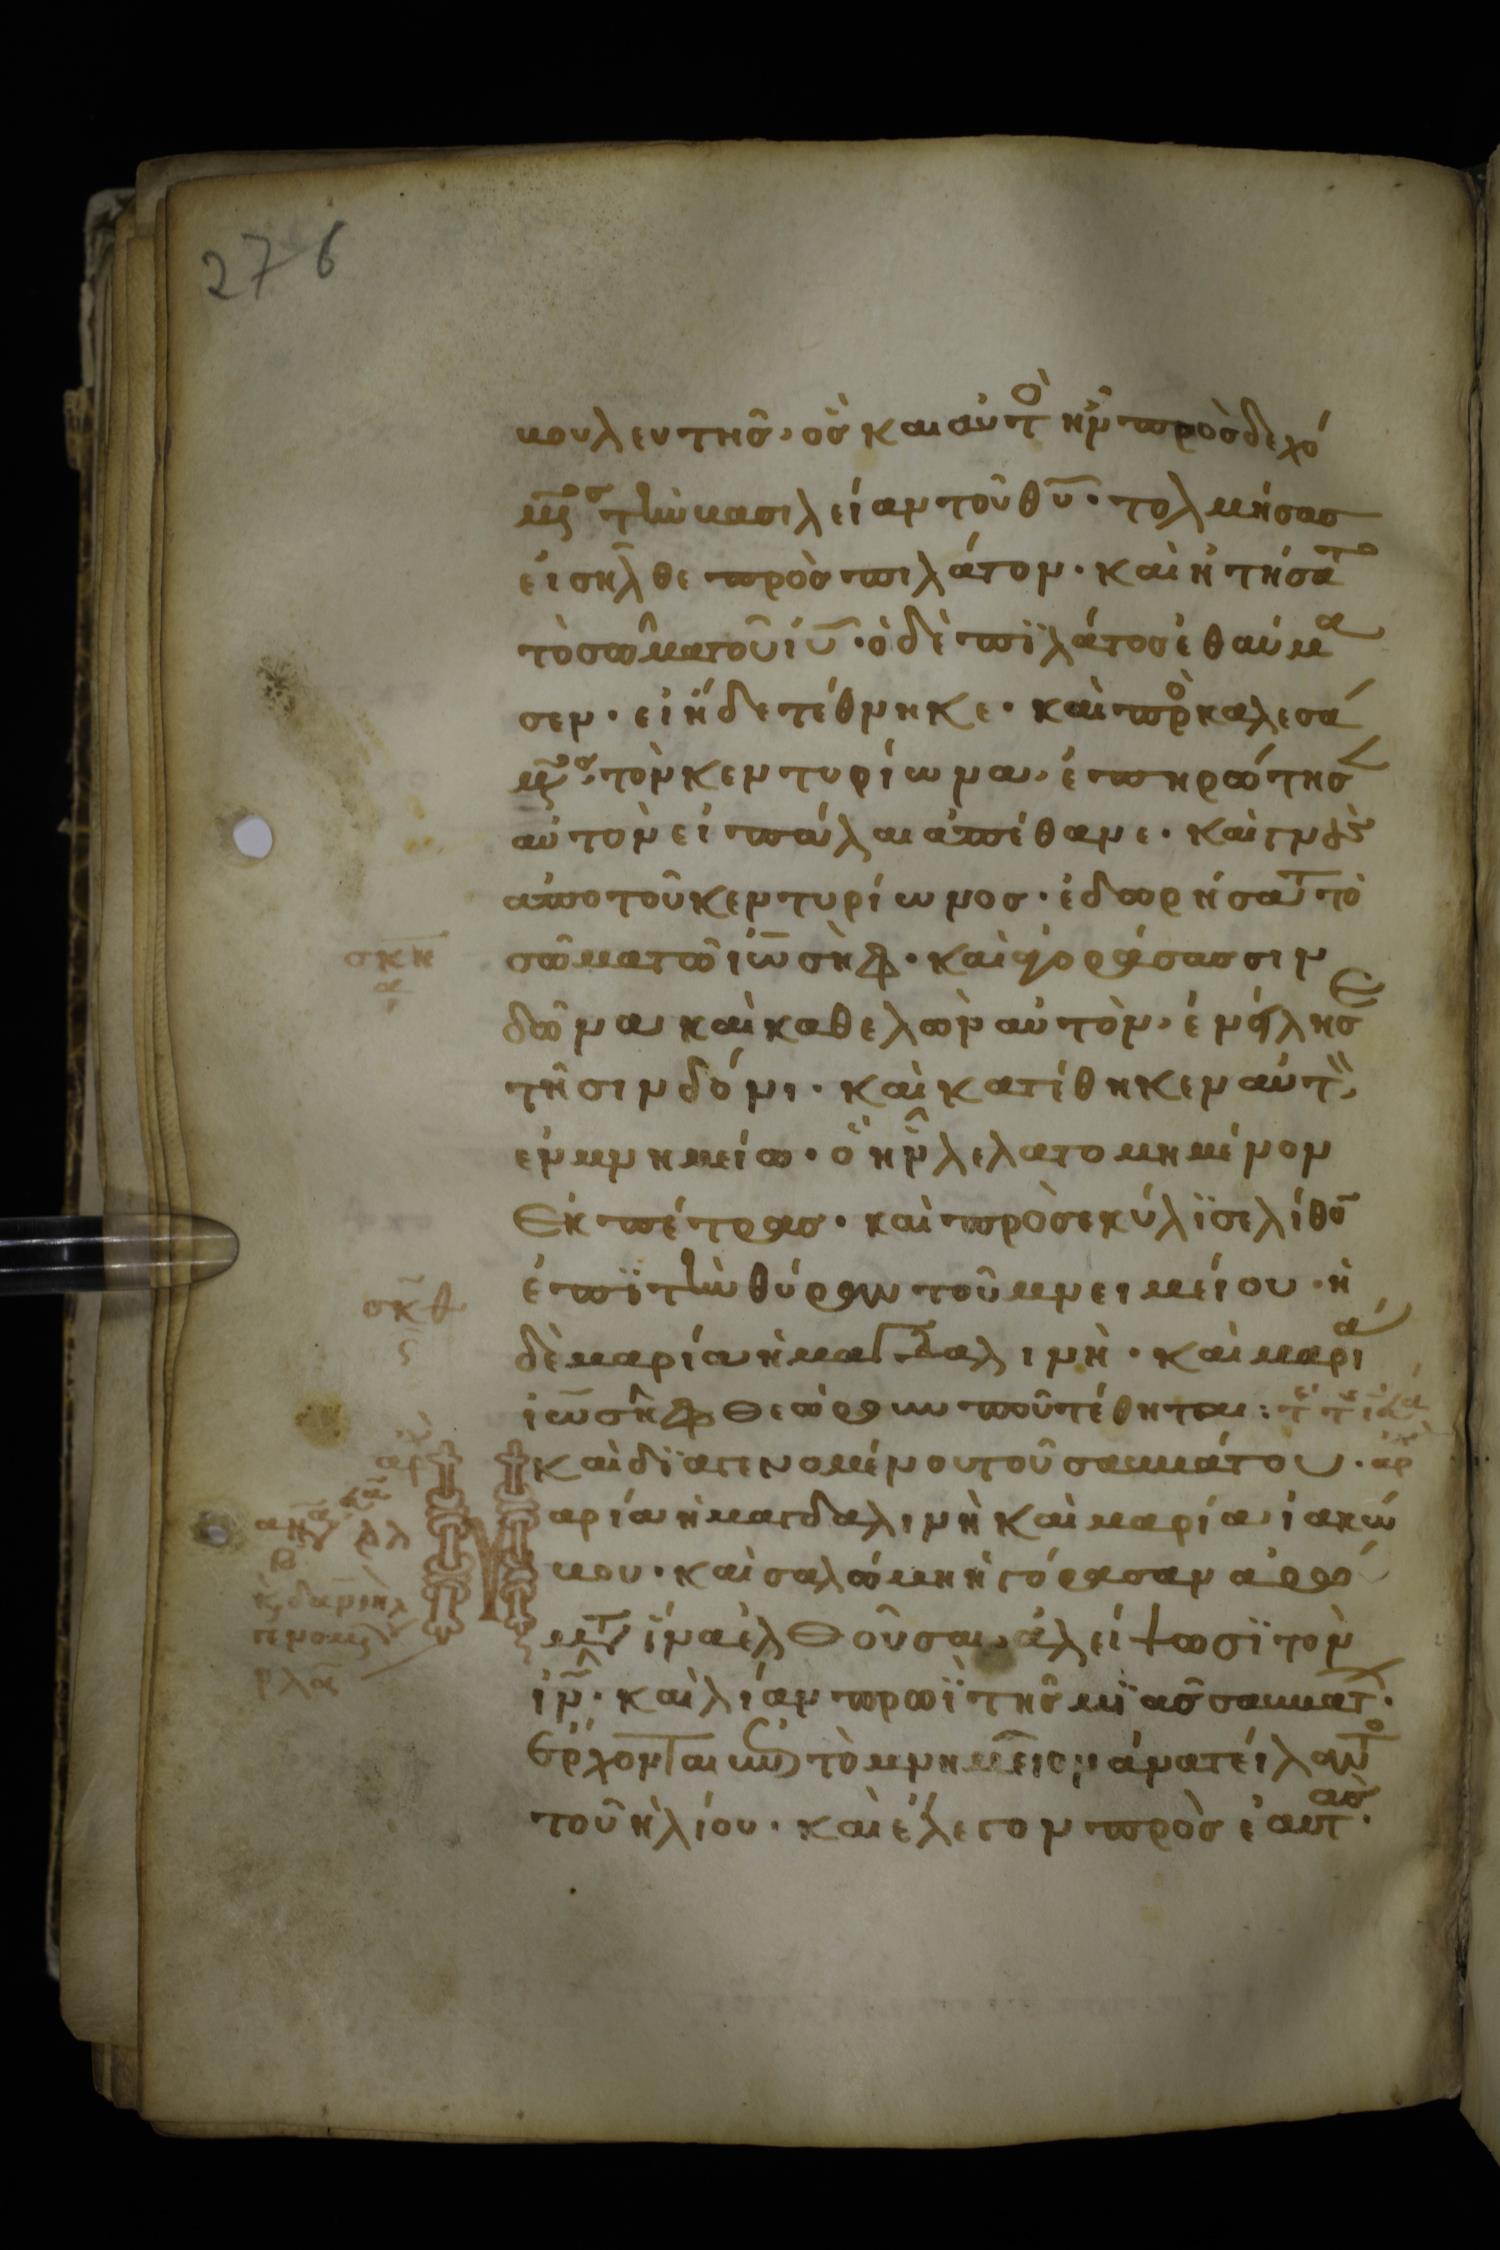 276
βουλευτης, ὃς και αὐτὸ ἦν προσδεχό
μ̅ς τὴν βασιλείαν τοῦ θ̅υ̅· τολμήσας
εἰσῆλθε πρὸς πιλάτον· καὶ ἠτήσατο
τὸ σῶμα τοῦ ι̅υ̅· ὁ δὲ πιλάτος ἐθαύμα
σεν· εἰ ἤδε τέθνηκε· καὶ προκαλεσά
μ̅ς, τὸν κεντυρίωνα, ἐπηρώτησ
αὐτον εἰ πάλαι ἀπέθανε· καὶ γνοὺς
ἀπο τοῦ κεντυρίωνος· ἐδωρήσατ τὸ
σῶμα τῶ ἰωσὴφ· καὶ ἀγοράσας σιν
σκη
α
δῶνα καὶ καθελὼν αὐτὸν, ἐνείλησε
τῆ σινδόνι· καὶ κατέθηκεν αὐτ
ἐν μνημείω· ὃ ἦν λελατομημένον
Ἐκ πέτρας· καὶ προσεκύλϊσε λίθο̅
ἐπϊ τὴν θύραν τοῦ μνειμείου· ἡ
σκθ
ς
δὲ μαρία ἡ μαγδαλινὴ· καὶ μαρία
ἰωσῆφ θεώρουν ποῦ τέθηται:
καὶ δϊαγενομένου τοῦ σαββάτου· αρχ
αρχ
Μαρία ἡ μαγδαλινὴ καὶ μαρία ἰακώ
βου· καὶ σαλώμη ἠγόρασαν ἀρώ
ματ ἵνα ἐλθοῦσαι, ἀλείψωσϊ τὸν
ρλα
ι̅ν̅· καὶ λίαν πρωϊ τῆς μϊᾶς σαββατ·
Ἔρχονται ἐπὶ τὸ μνημεῖον ἀνατείλαντο
τοῦ ἡλίου· καὶ ἔλεγον πρὸς ἑαυτάς·